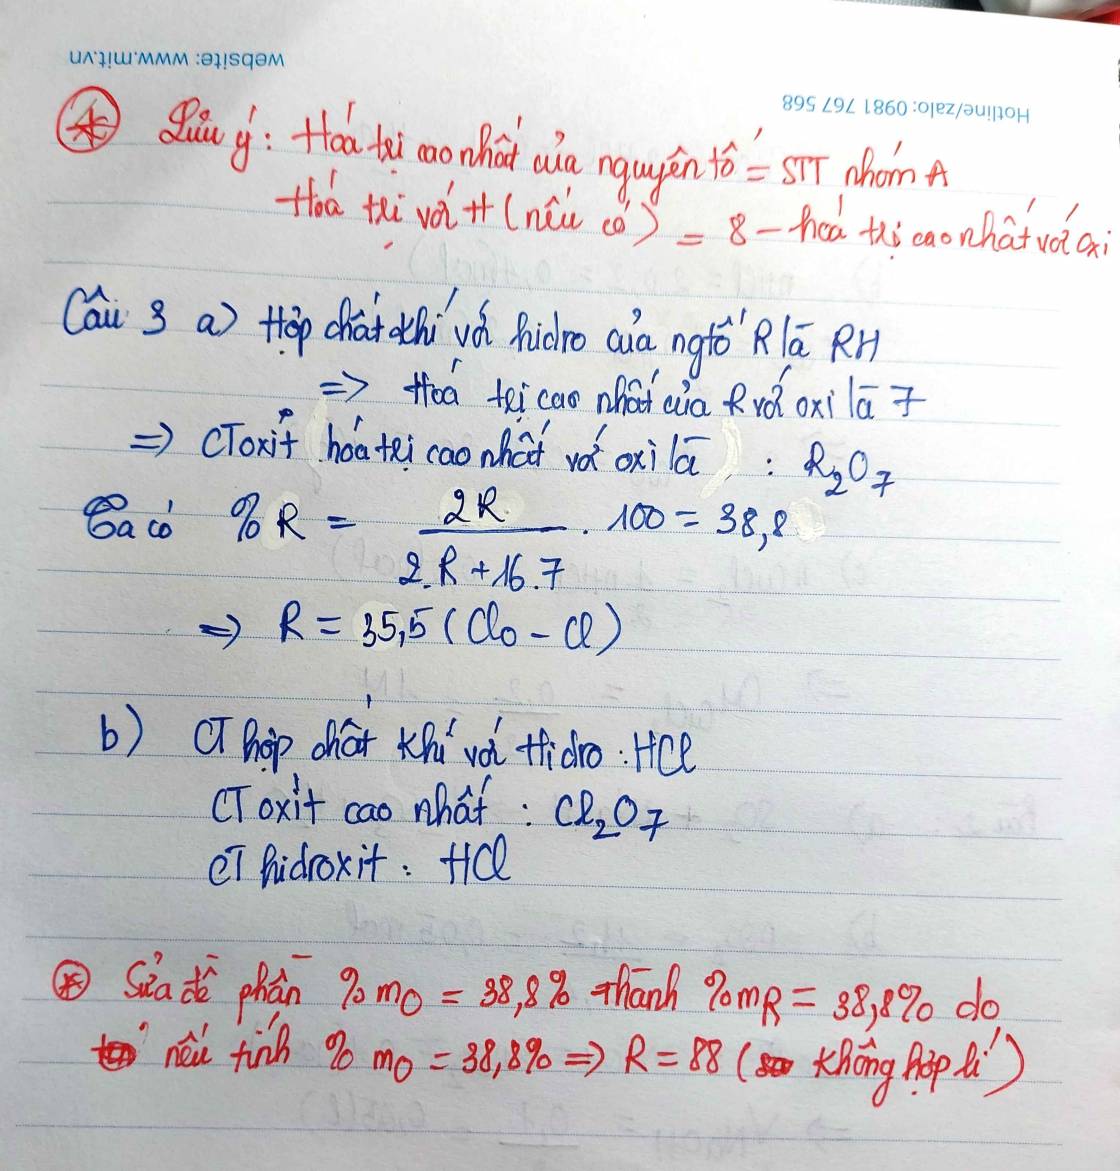 website: www.mit.vn
Hotline/zalo: 0981 767 568
Lưu ý: Hoá trị cao nhất của nguyên tố = STT nhóm A
Hoá trị với H (nếu có) = 8 - hoá trị cao nhất với oxi
Câu 3 a) Hợp chất khí với hidro của ngtố R là RH
=> Hoá trị cao nhất của R với oxi là 7
=> CT oxit hoá trị cao nhất với oxi là : R₂O₇
Ta có %R = 2R / (2.R + 16.7) . 100 = 38,8
=> R = 35,5 (Clo - Cl)
b) CT hợp chất khí với Hidro : HCl
CT oxit cao nhất : Cl₂O₇
CT hidroxit : HCl
Sửa đề phần %mO = 38,8% thành %mR = 38,8% do
nếu tính %mO = 38,8% => R = 88 (không hợp lí)